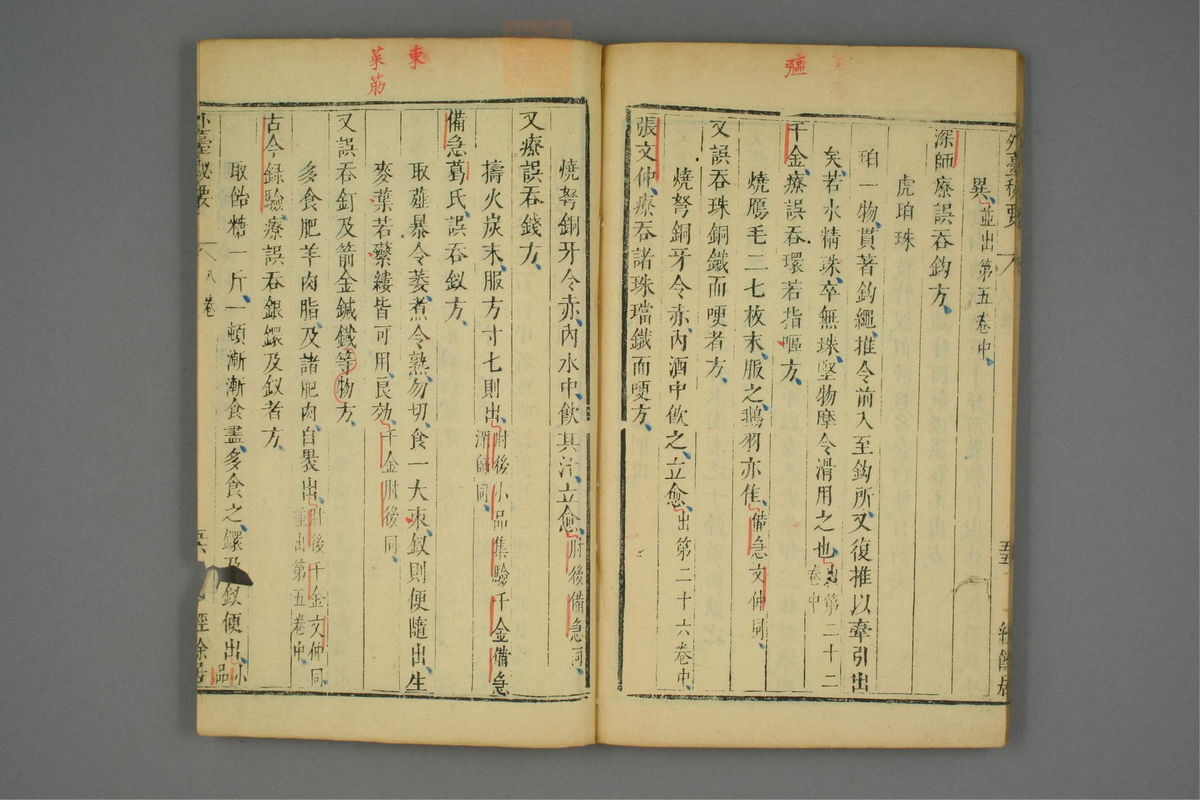 彄
異並出第五卷中
深師療誤吞鈎方
虎珀珠
珀一物貫著鈎繩推令前入至鈎所又復推以牽引出
矣若水精珠卒無珠堅物摩令滑用之也出第二十二卷中
千金療誤吞環若指彄方
燒鴈毛二七枚末服之鵝羽亦佳備急文仲同
又誤吞珠銅鐵而哽者方
燒弩銅牙令赤內酒中飲之立愈出第二十六卷中
張文仲療吞諸珠璫鐵而哽方
東
菜筋
燒弩銅牙令赤內水中飲其汁立愈肘後備急同
又療誤吞錢方
擣火炭末服方寸匕則出肘後小品集驗千金備急深師同
備急葛氏誤吞釵方
取薤暴令萎煮令熟勿切食一大束釵則便隨出生
麥葉若虆縷皆可用良效千金肘後同
又誤吞釘及箭金鍼錢等物方
多食肥羊肉脂及諸肥肉自裹出肘後千金文仲同並出第五卷中
古今錄驗療誤吞銀鐶及釵者方
取飴糖一斤一頓漸漸食盡多食之鐶及釵便出小品
外臺秘要
八卷
經餘居